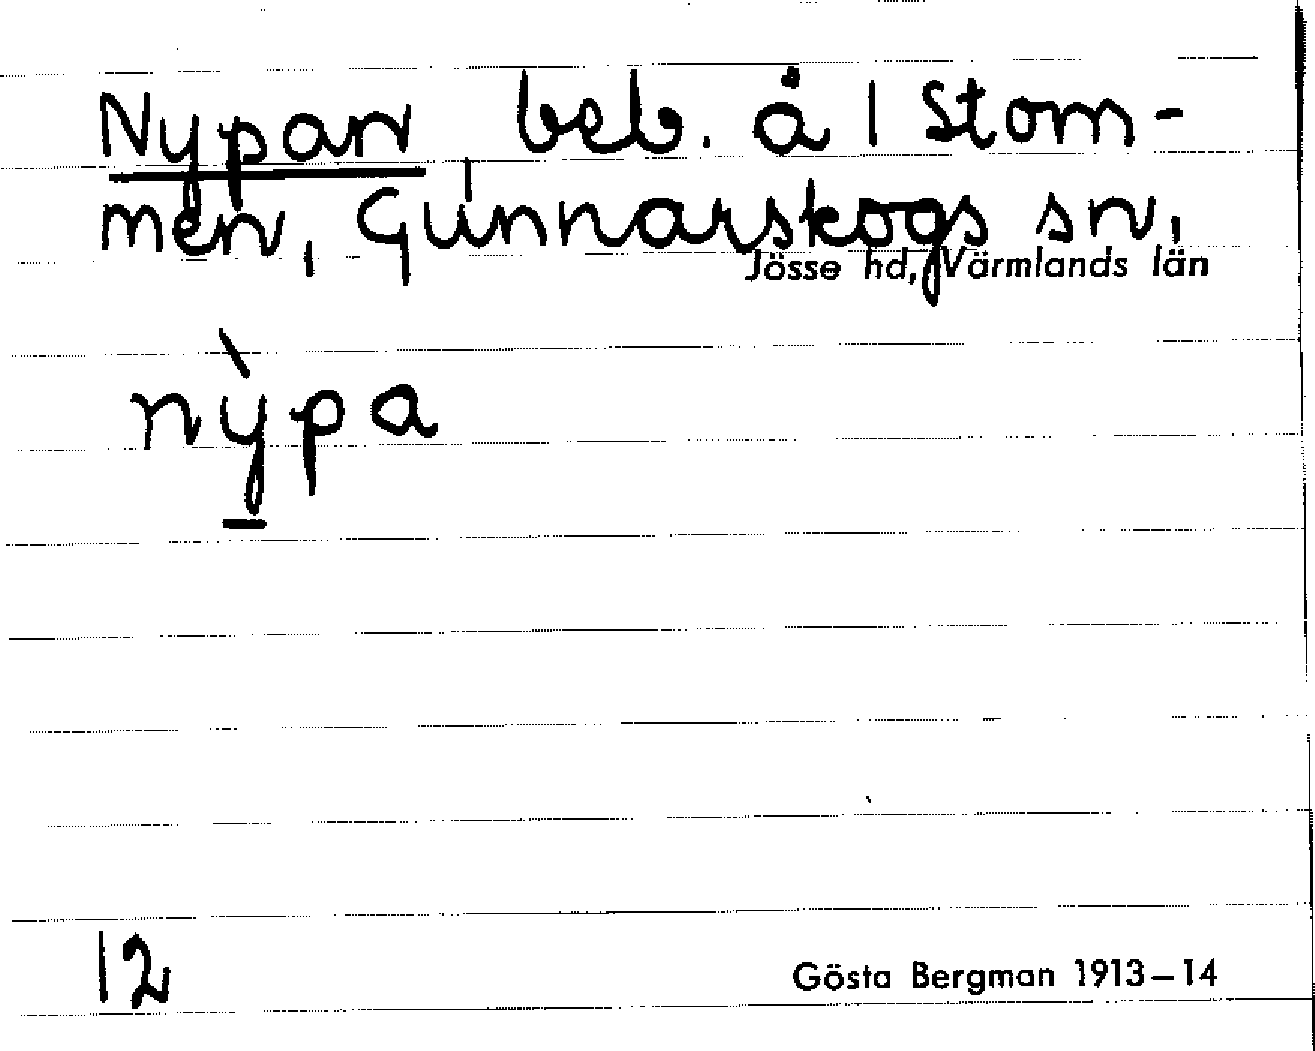 Nypan, beb. å 1 Stom-
men, Gunnarskogs sn,
Jösse hd, Värmlands län
nỳpa
12
Gösta Bergman 1913–14